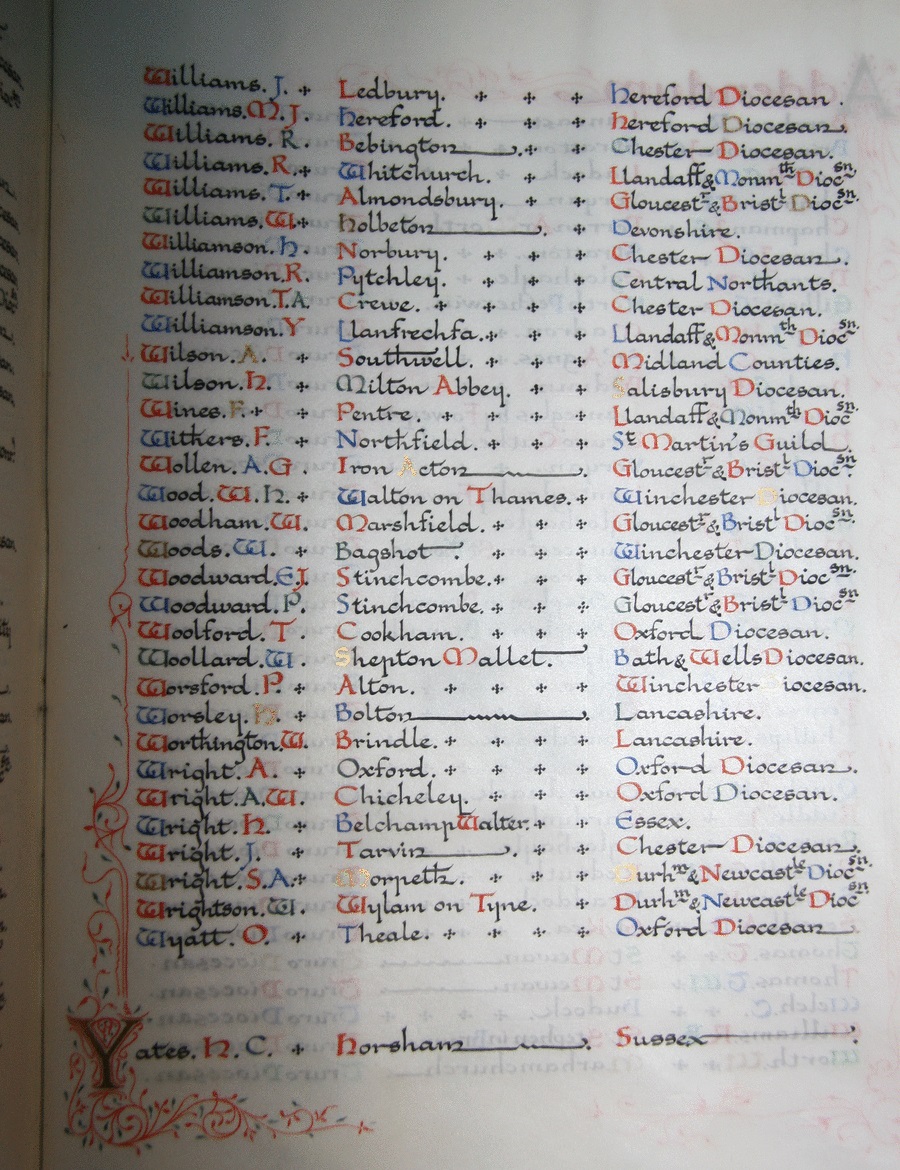 Williams. J. Ledbury. Hereford Diocesan.
Williams. M. J. Hereford. Hereford Diocesan.
Williams. R. Bebington. Chester Diocesan.
Williams. R. Whitchurch. Llandaff & Monmth Diocsn.
Williams. T. Almondsbury. Gloucestr & Bristl Diocsn.
Williams. W. Holbeton. Devonshire.
Williamson. H. Norbury. Chester Diocesan.
Williamson. R. Pytchley. Central Northants.
Williamson. T. A. Crewe. Chester Diocesan.
Williamson. Y Llanfrechfa. Llandaff & Monmth Diocsn.
Wilson. A. Southwell. Midland Counties.
Wilson. H. Milton Abbey. Salisbury Diocesan.
Wines. F. Pentre. Llandaff & Monmth Diocsn.
Withers. F. Northfield. St Martin's Guild.
Wollen. A. G. Iron Acton. Gloucestr & Bristl Diocsn
Wood. W. H. Walton on Thames. Winchester Diocesan.
Woodham. W. Marshfield. Gloucestr & Bristl Diocsn.
Woods. W. Bagshot. Winchester Diocesan.
Woodward. E. J. Stinchcombe. Gloucestr & Bristl Diocsn.
Woodward. P. Stinchcombe. Gloucestr & Bristl Diocsn
Woolford. T. Cookham. Oxford Diocesan.
Woollard. W. Shepton Mallet. Bath & Wells Diocesan.
Worsford. P. Alton. Winchester Diocesan.
Worsley. Bolton. Lancashire.
Worthington. W. Brindle. Lancashire.
Wright. A. Oxford. Oxford Diocesan.
Wright. A. W. Chicheley. Oxford Diocesan.
Wright. H. Belchamp Walter. Essex.
Wright. J. Tarvin. Chester Diocesan.
Wright. S. A. Morpeth. Durhm & Newcastle Diocsn.
Wrightson. W. Wylam on Tyne. Durhm & Newcastle Diocsn
Wyatt. O. Theale. Oxford Diocesan
Yates. H. C. Horsham. Sussex